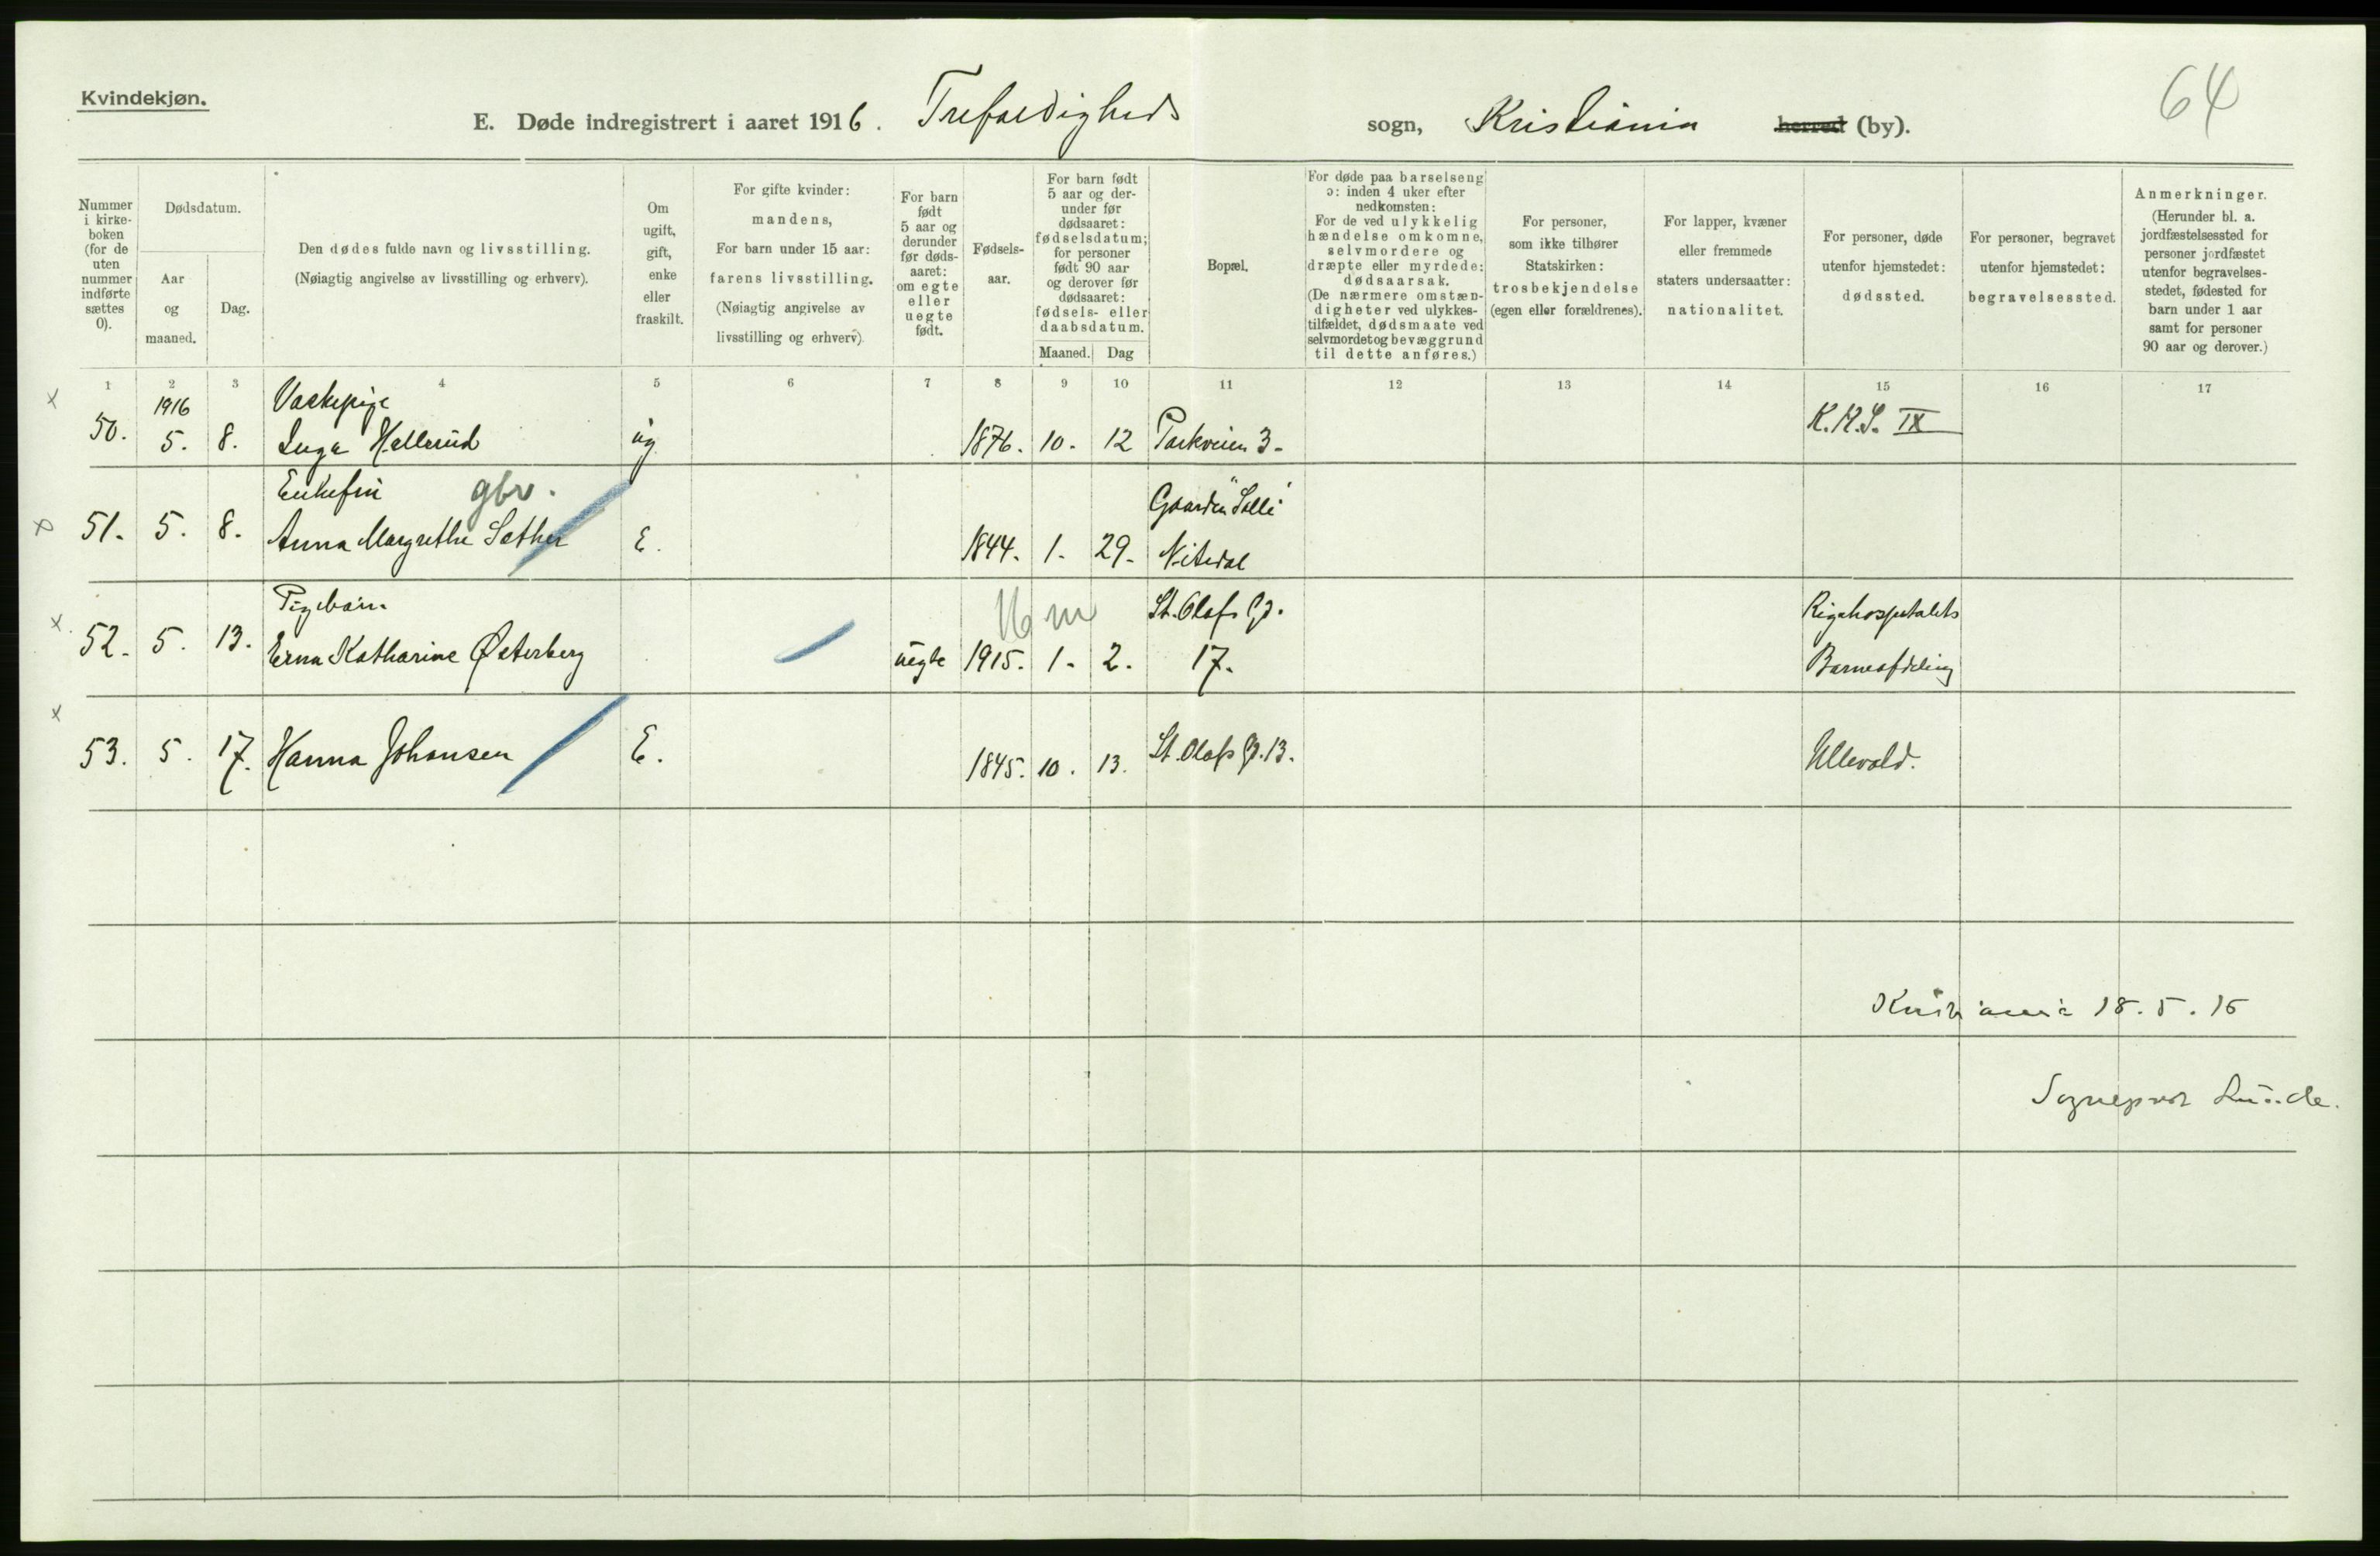 Kvindekjøn.
64
E. Døde indregistrert i aaret 1916. Trefoldigheds sogn, Kristiania herred (by).
Nummer i kirkeboken (for de uten nummer indførte sættes 0).
Dødsdatum.
Aar og maaned.
Dag.
Den dødes fulde navn og livsstilling.
(Nøiagtig angivelse av livsstilling og erhverv).
Om ugift, gift, enke eller fraskilt.
For gifte kvinder: mandens,
For barn under 15 aar: farens livsstilling.
(Nøiagtig angivelse av livsstilling og erhverv)
For barn født 5 aar og derunder før dødsaaret: om egte eller uegte født.
Fødselsaar.
For barn født 5 aar og derunder før dødsaaret: fødselsdatum; for personer født 90 aar og derover før dødsaaret: fødsels- eller daabsdatum.
Maaned.
Dag
Bopæl.
For døde paa barselseng ɔ: inden 4 uker efter nedkomsten:
For de ved ulykkelig hændelse omkomne, selvmordere og dræpte eller myrdede: dødsaarsak.
(De nærmere omstændigheter ved ulykkestilfældet, dødsmaate ved selvmordet og bevæggrund til dette anføres.)
For personer, som ikke tilhører Statskirken: trosbekjendelse (egen eller forældrenes).
For lapper, kvæner eller fremmede staters undersaatter: nationalitet.
For personer, døde utenfor hjemstedet: dødssted.
For personer, begravet utenfor hjemstedet: begravelsessted.
Anmerkninger.
(Herunder bl. a. jordfæstelsessted for personer jordfæstet utenfor begravelsesstedet, fødested for barn under 1 aar samt for personer 90 aar og derover.)
1 2 3 4 5 6 7 8 9 10 11 12 13 14 15 16 17
x 1916 Vaskepige K.K.S. IX
50. 5. 8. Inga Hellerud ug 1876. 10. 12 Parkveien 3.
Enkefru gbr. Gaarden "Solli"
x 51. 5. 8. Anna Margrethe Sæther E. 1844. 1. 29. Nitedal
Pigebarn 16 m St. Olafs Gd. Rigshospitalets
x 52. 5. 13. Erna Katharine Østerberg uegte 1915. 1. 2. 17. Barneafdeling
x 53. 5. 17. Hanna Johansen E. 1845. 10. 13. St. Olafs Gd. 13. Ullevold.
Kristiania 18.5.16
Sogneprest Lunde.